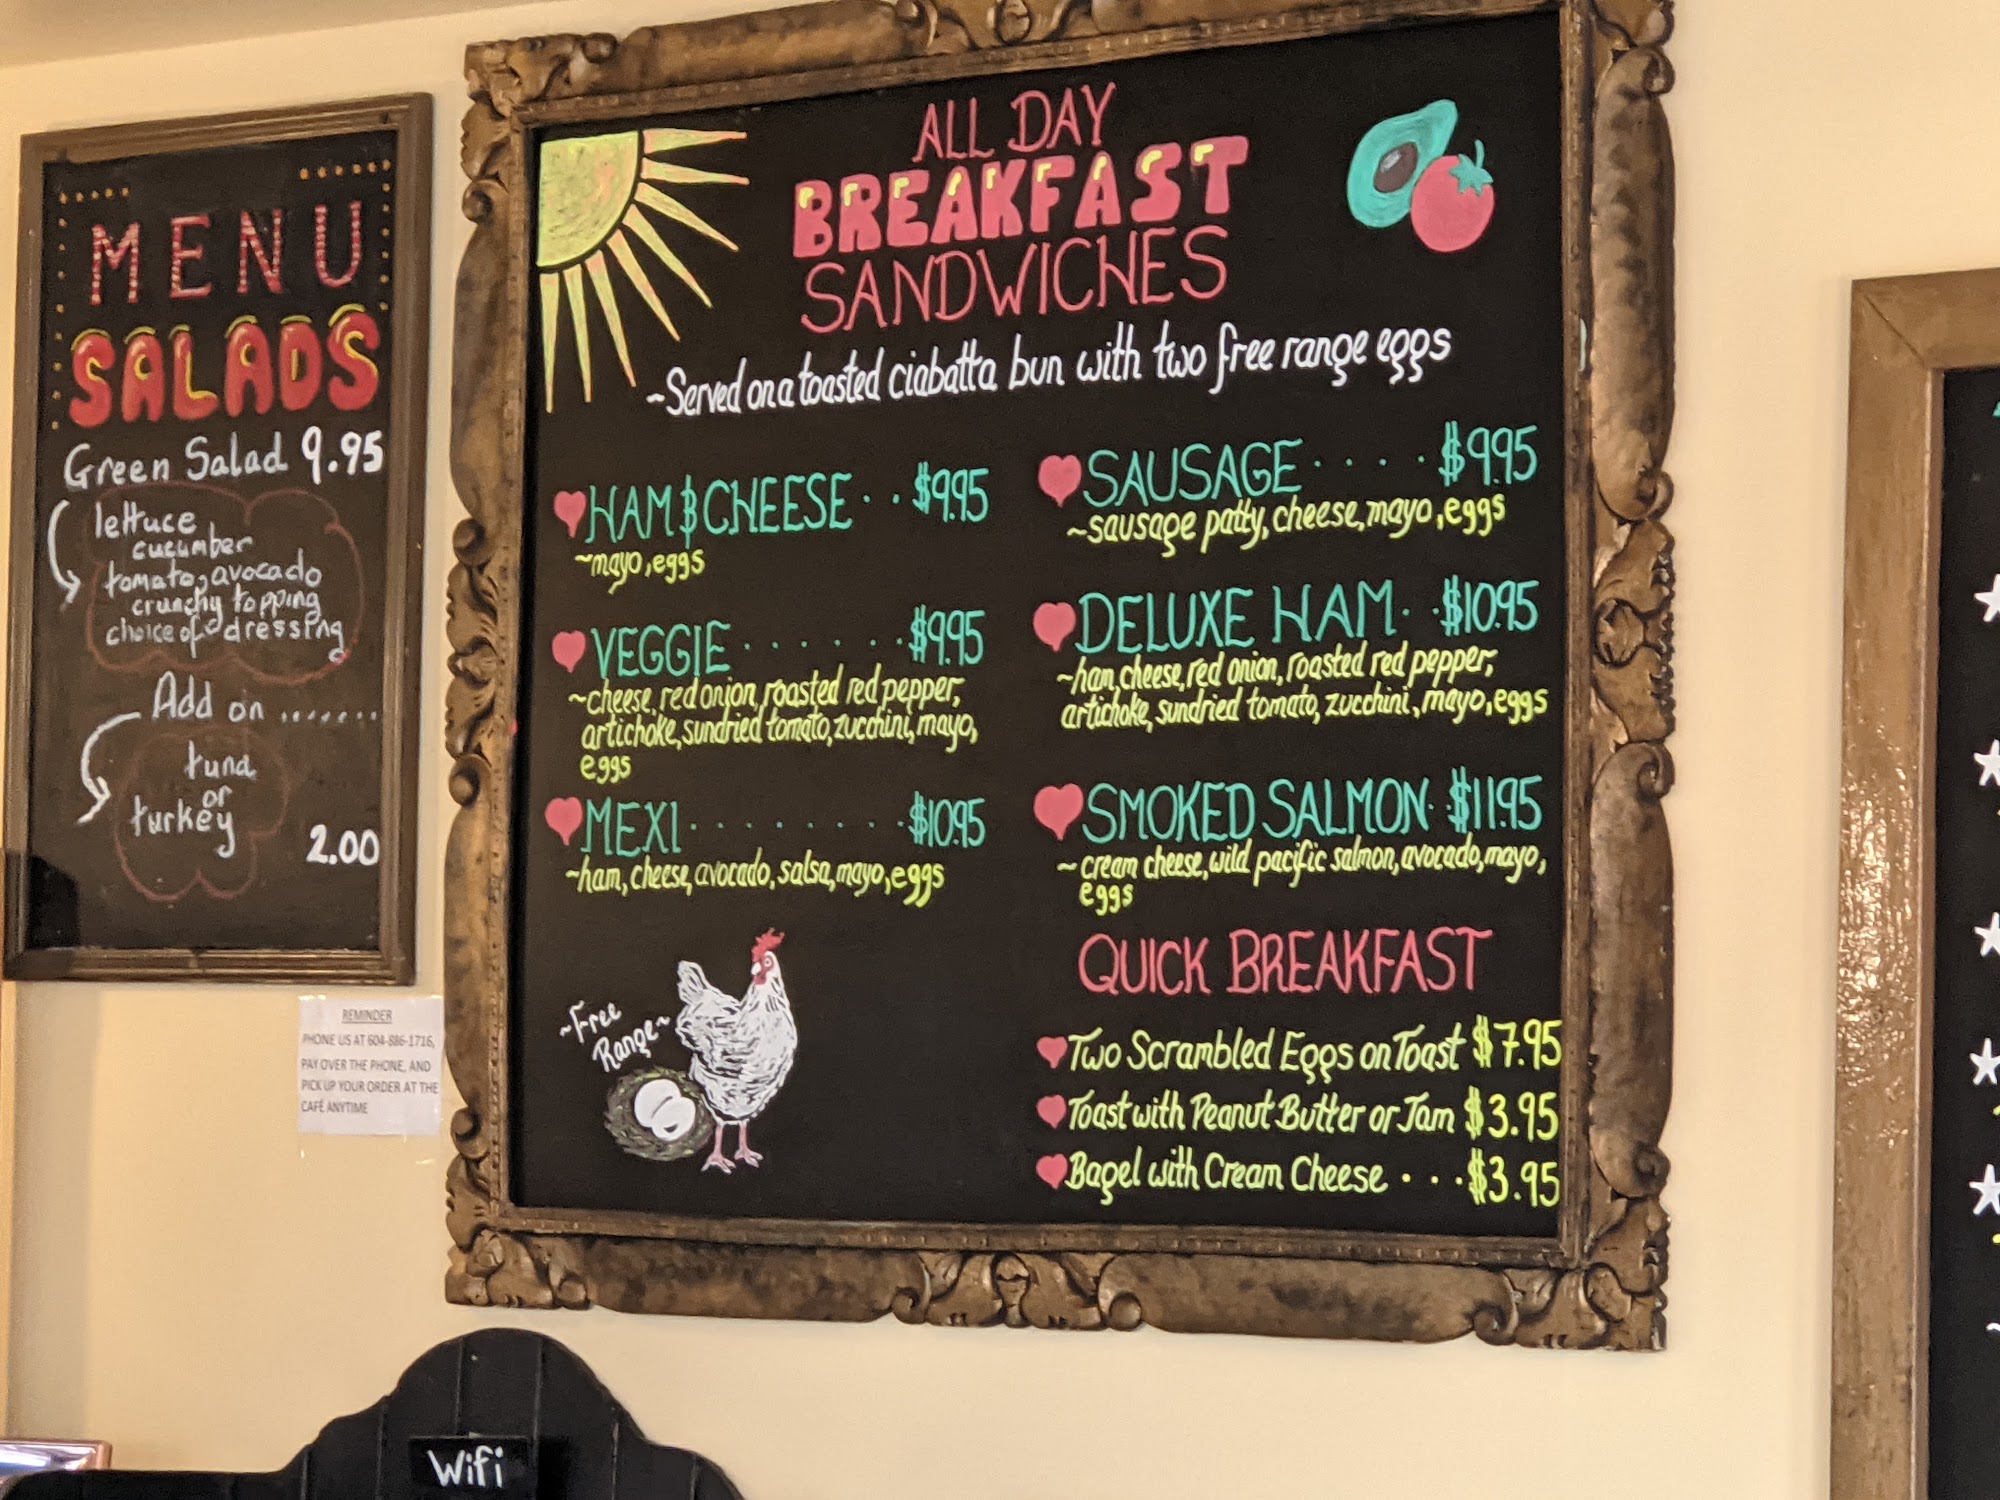 MENU
SALADS
Green Salad 9.95
lettuce
cucumber
tomato, avocado
crunchy topping
choice of dressing
Add on .......
tuna
or
turkey
2.00
REMINDER
PHONE US AT 604-886-1716,
PAY OVER THE PHONE, AND
PICK UP YOUR ORDER AT THE
CAFÉ ANYTIME
ALL DAY
BREAKFAST
SANDWICHES
~Served on a toasted ciabatta bun with two free range eggs
HAM & CHEESE . . $9.95
~mayo, eggs
VEGGIE . . . . . . $9.95
~cheese, red onion, roasted red pepper,
artichoke, sundried tomato, zucchini, mayo,
eggs
MEXI . . . . . . . . $10.95
~ham, cheese, avocado, salsa, mayo, eggs
~Free
Range~
SAUSAGE . . . . $9.95
~sausage patty, cheese, mayo, eggs
DELUXE HAM . . $10.95
~ham, cheese, red onion, roasted red pepper,
artichoke, sundried tomato, zucchini, mayo, eggs
SMOKED SALMON . . $11.95
~cream cheese, wild pacific salmon, avocado, mayo,
eggs
QUICK BREAKFAST
Two Scrambled Eggs on Toast $7.95
Toast with Peanut Butter or Jam $3.95
Bagel with Cream Cheese . . . $3.95
Wifi